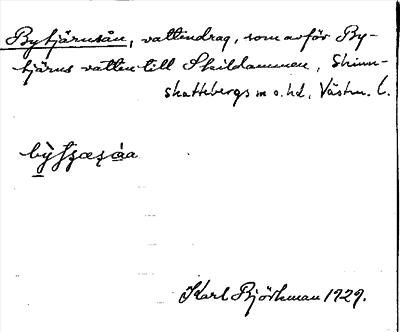 Bytjärnsån, vattendrag, som avför By-
tjärns vatten till Skildammen, Skinn-
skattebergs m o. hd, Västm. l.
Karl Björkman 1929.